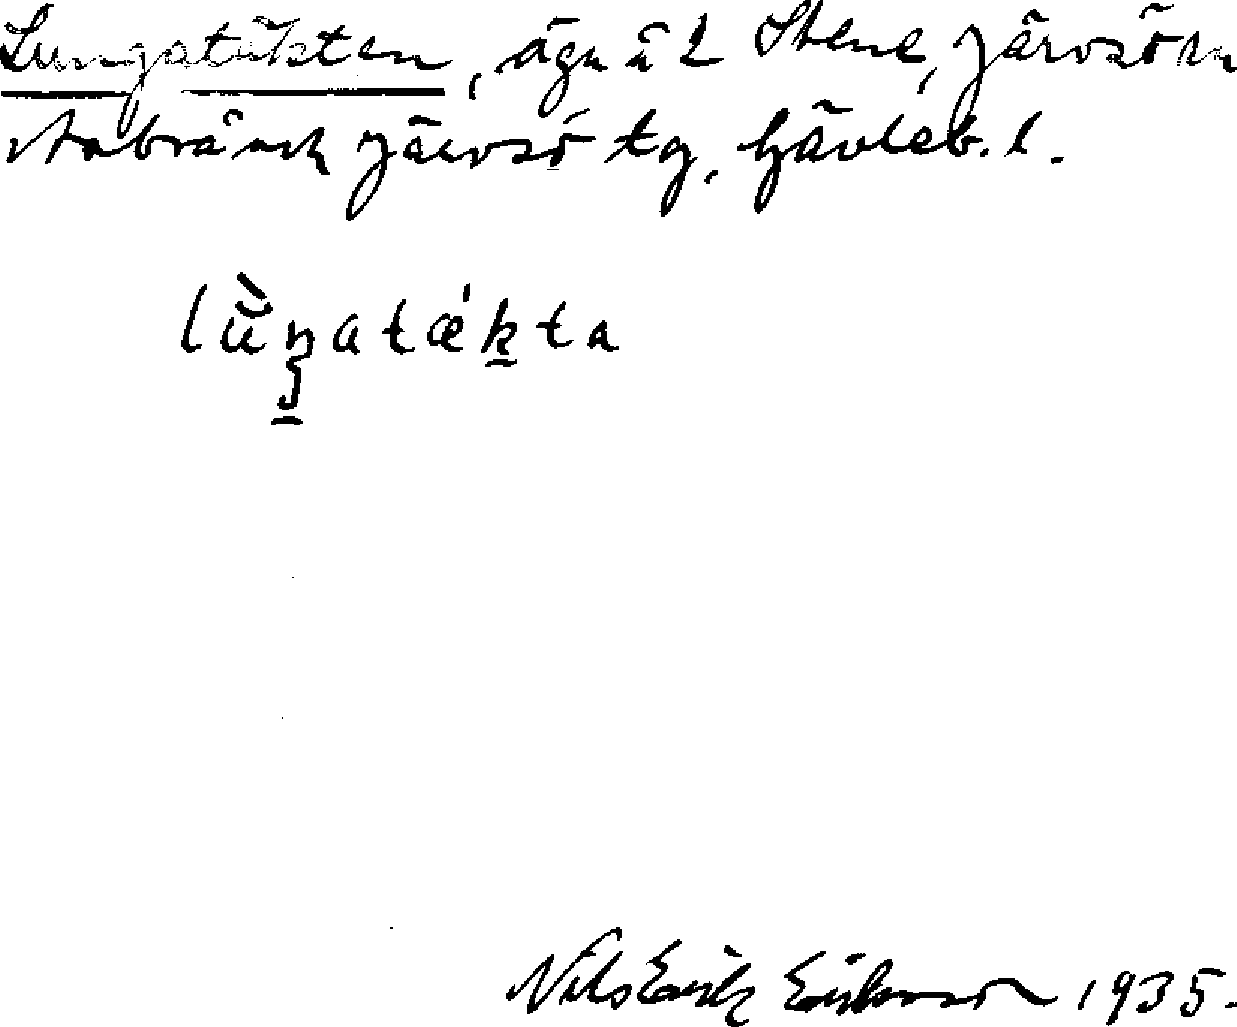 Lungatäkten, ägn å 2 Stene, Järvsö sn
Järvsö tg, Gävleb. l.
lùŋatǽkta
Nils Erik Eriksson 1935.